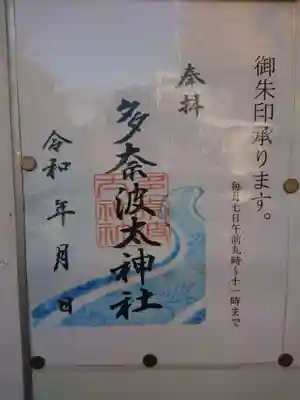 御朱印承ります。
毎月七日午前九時~十一時まで
奉拝
多奈波太神社
令和 年 月 日